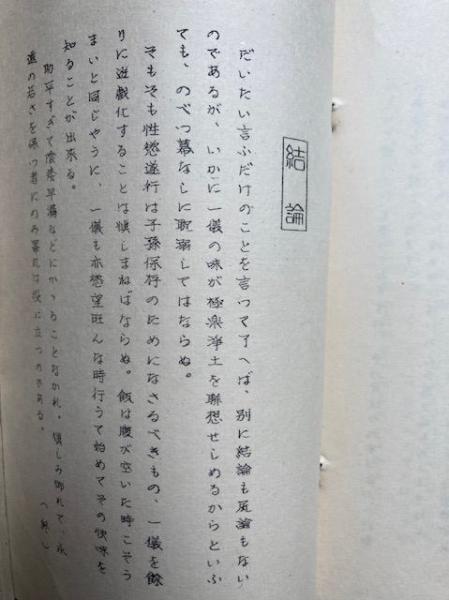 結論
だいたい言ふだけのことを言つて了へば、別に結論も尻論もない
のであるが、いかに一儀の味が極楽浄土を聯想せしめるからといふ
ても、のべつ幕なしに耽溺してはならぬ。
そもそも性慾遂行は子孫保存のためになさるべきもの、一儀を餘
りに遊戯化することは愼しまねばならぬ。飯は腹が空いた時こそう
まいと同じやうに、一儀も亦慾望旺んな時行うて始めてその快味を
知ることが出来る。
助平すぎて陰萎早漏などにかゝることなかれ。愼しみ
遠の若さを保つ者にのみ
に立つのである。